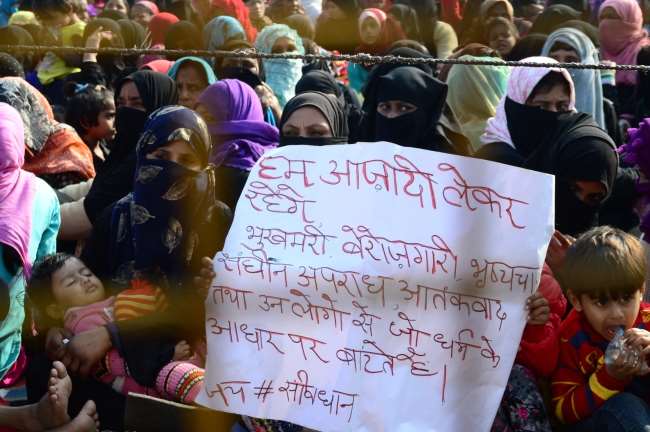 हम आज़ादी लेकर
रहेगे
भुखमरी, बेरोज़गारी,
संघीन अपराध आतंकवाद
तथा उन लोगो से जो धर्म के
आधार पर बाटते है।
जय #संविधान